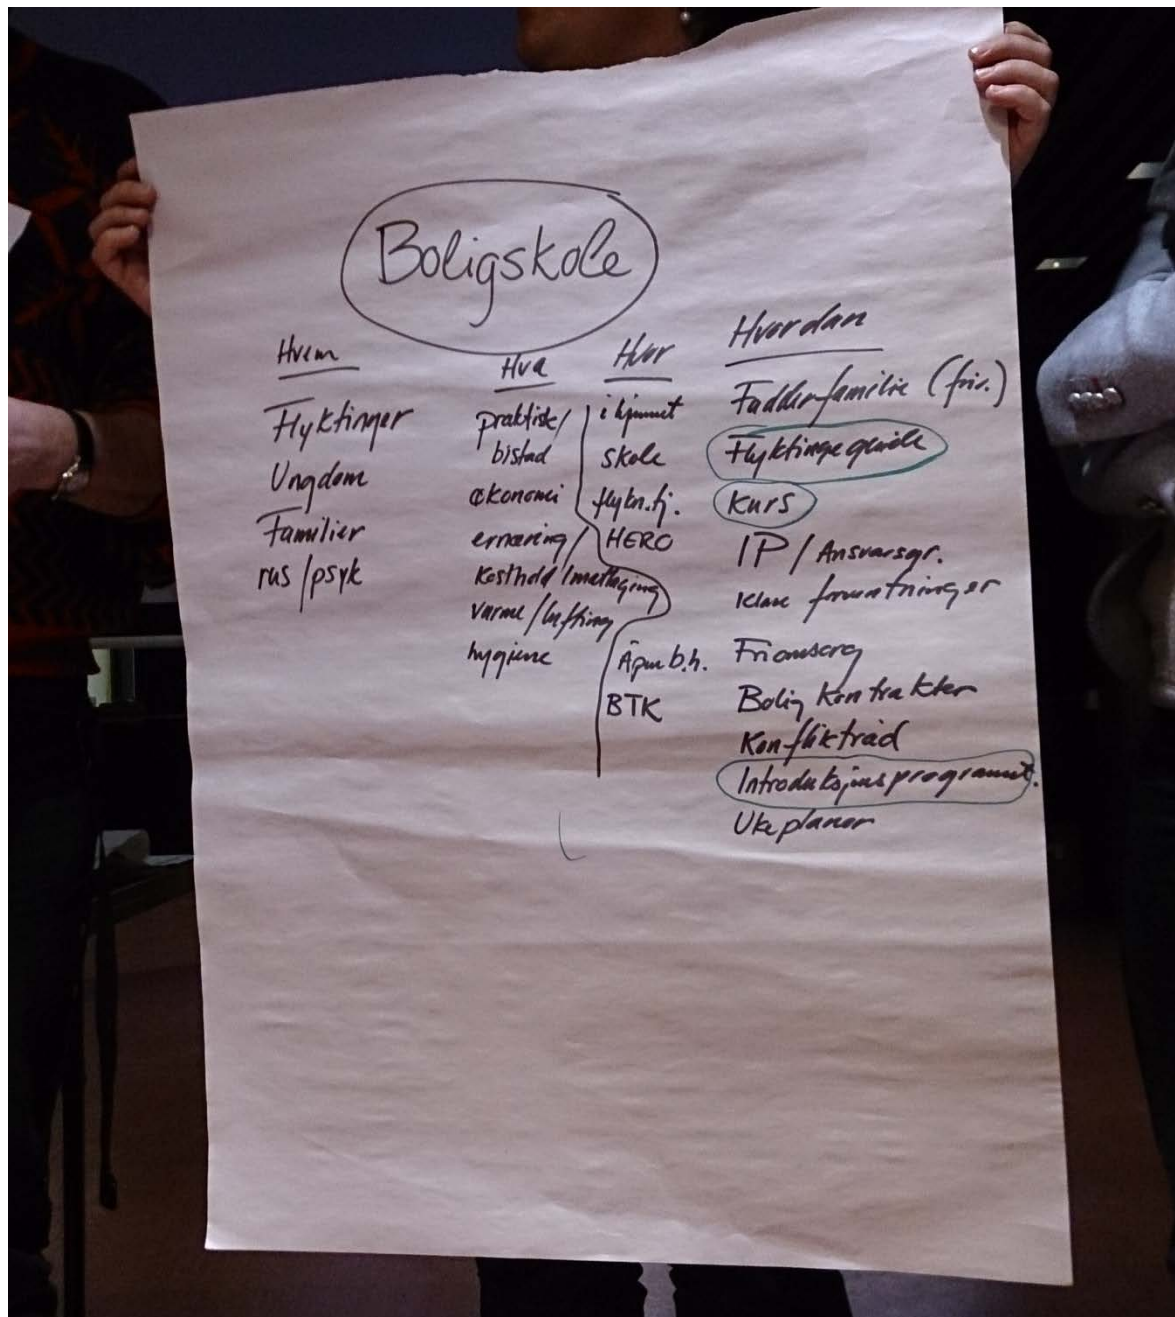 Boligskole
Hvem
Flyktinger
Ungdom
Familier
rus/psyk
Hva
praktisk/
bistad
økonomi
ernæring/
Kosthold/matlaging
varme/lufting
hygiene
Hvor
i hjemmet
skole
flyktn.tj.
HERO
Åpen b.h.
BTK
Hvordan
Fadderfamilie (friv.)
Flyktingeguide
Kurs
IP/Ansvarsgr.
klare forventninger
Friomsorg
Bolig kontrakter
Konfliktråd
Introduksjonsprogrammet.
Ukeplaner